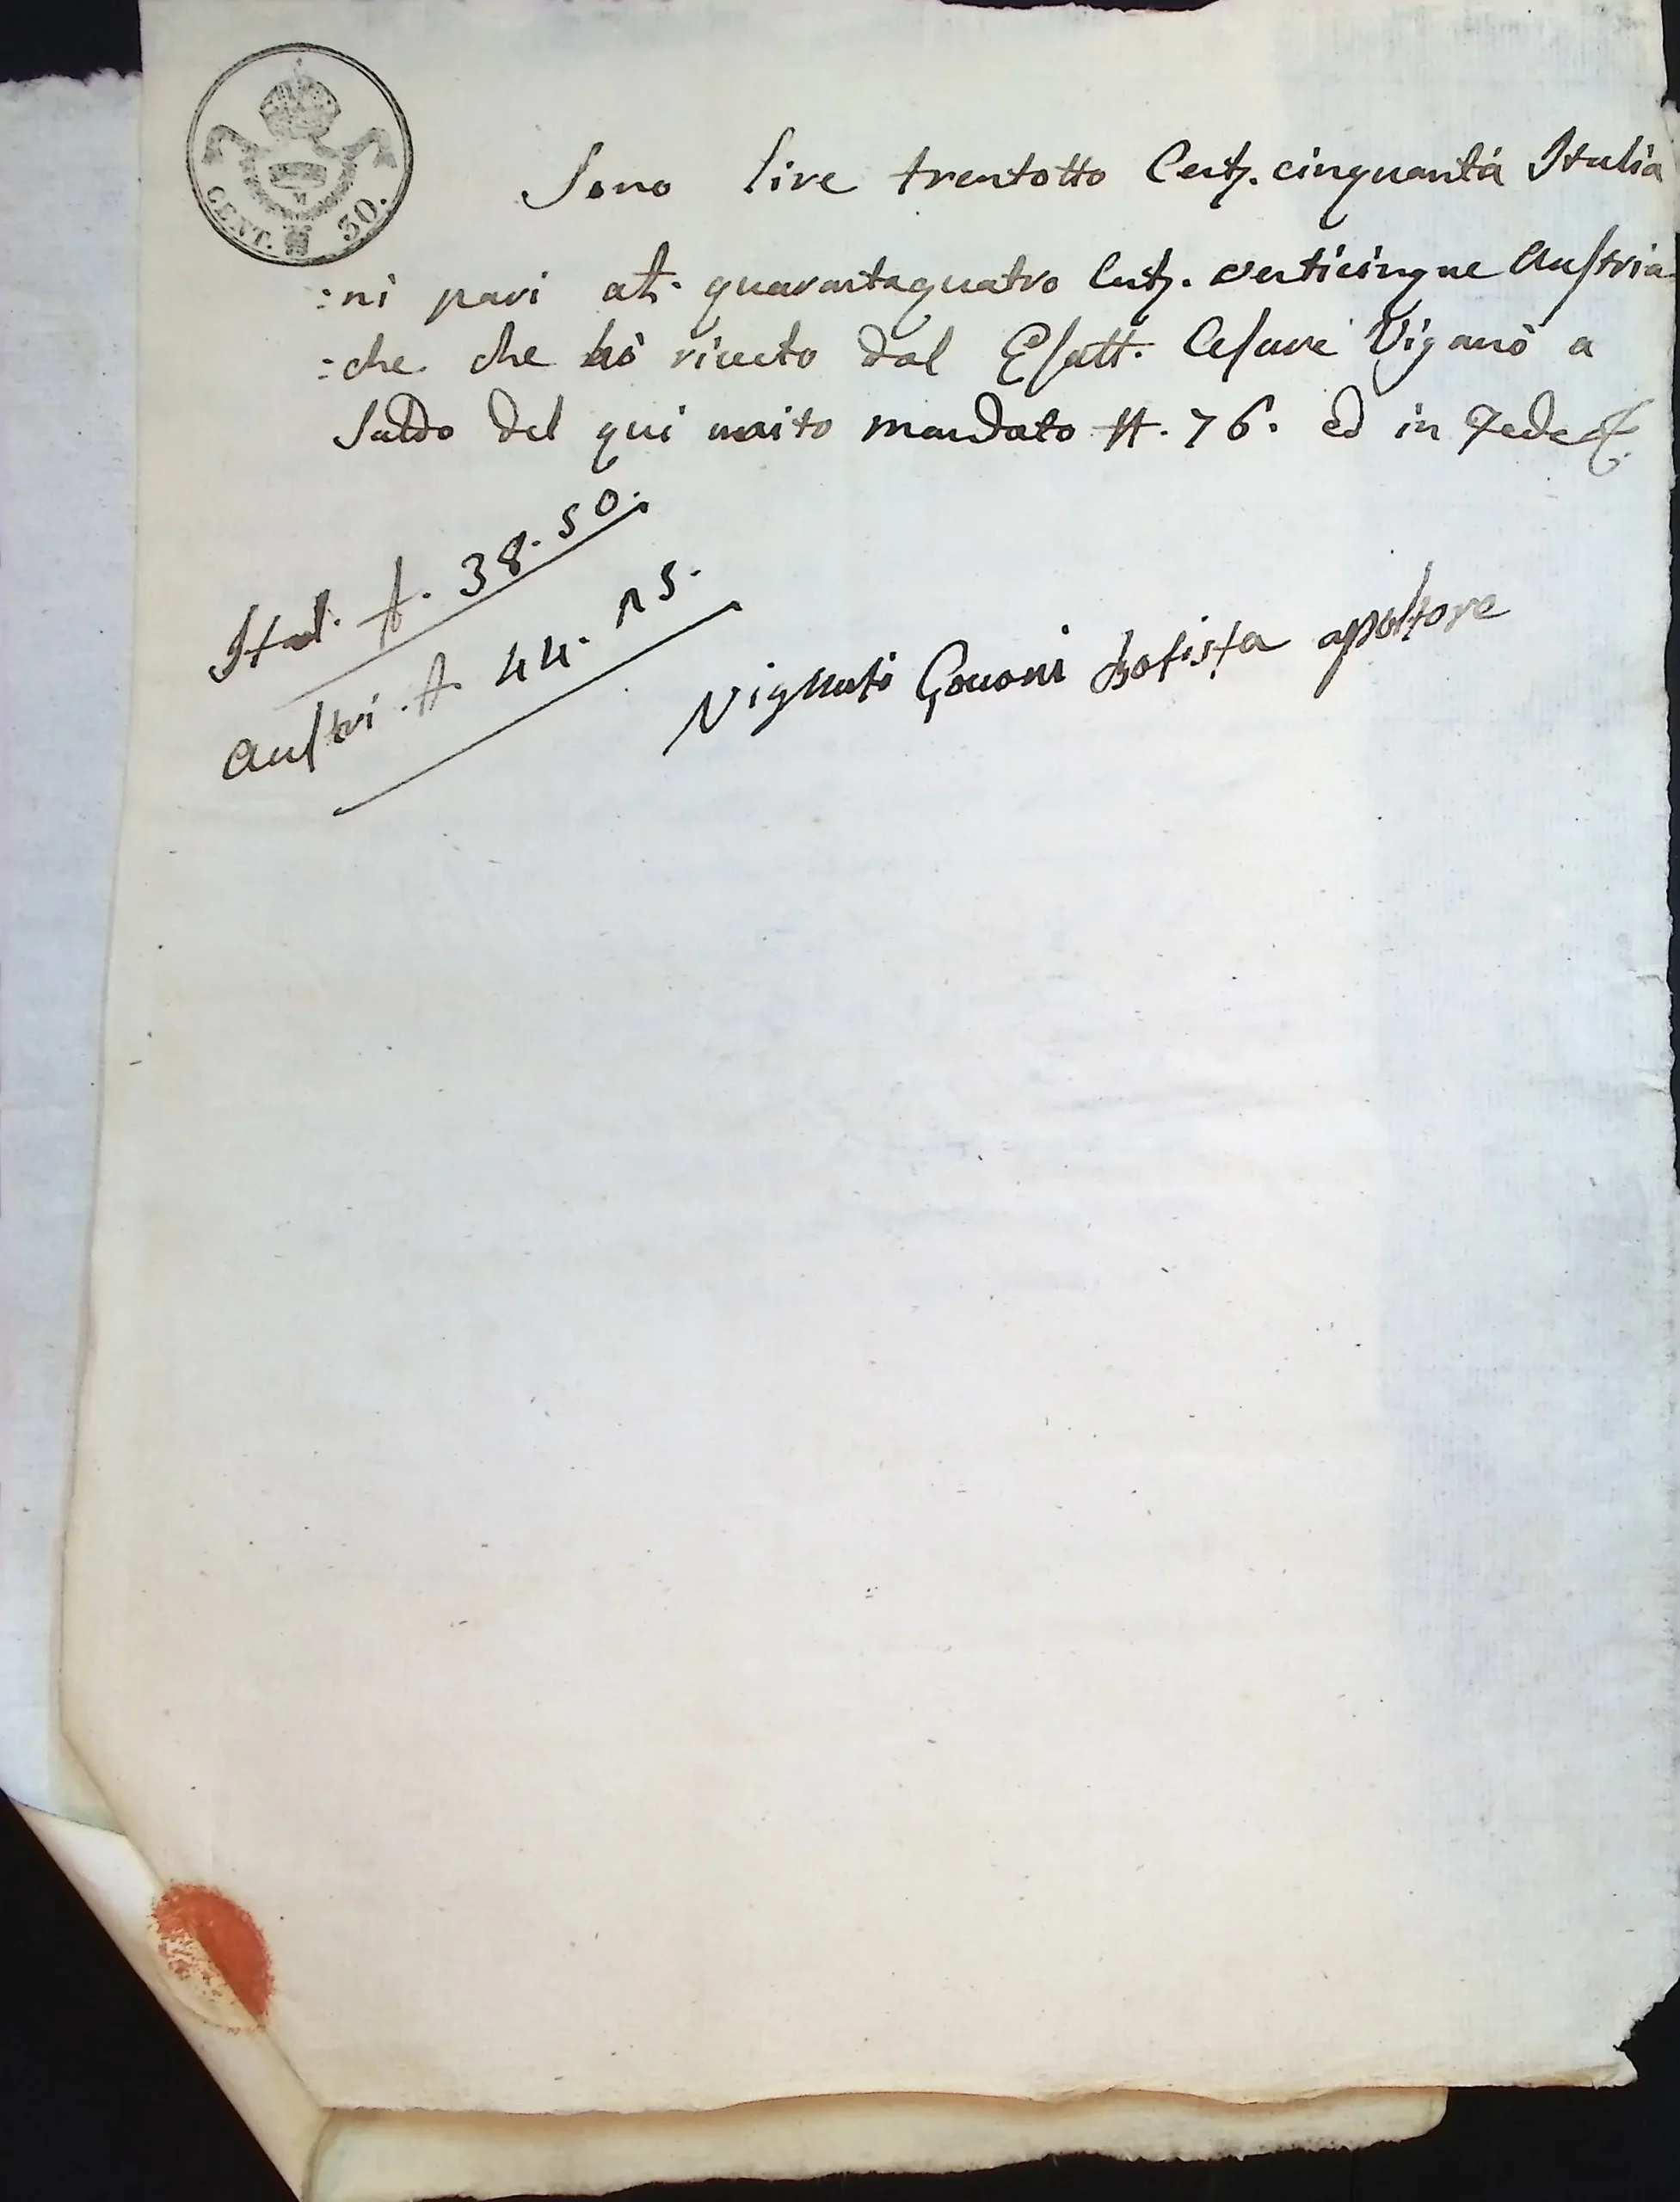 CENT. 30.
Sono lire trentotto Cent. cinquanta Italia
:ni pari a £. quarantaquatro Cent. venticinque Austria
:che che hò riceuto dal Esatt. Cesare Viganò a
Saldo del qui unito mandato N. 76. ed in Fede
Ital. £. 38. 50.
Austri. £. 44. 25.
Vignati Batista apaltore